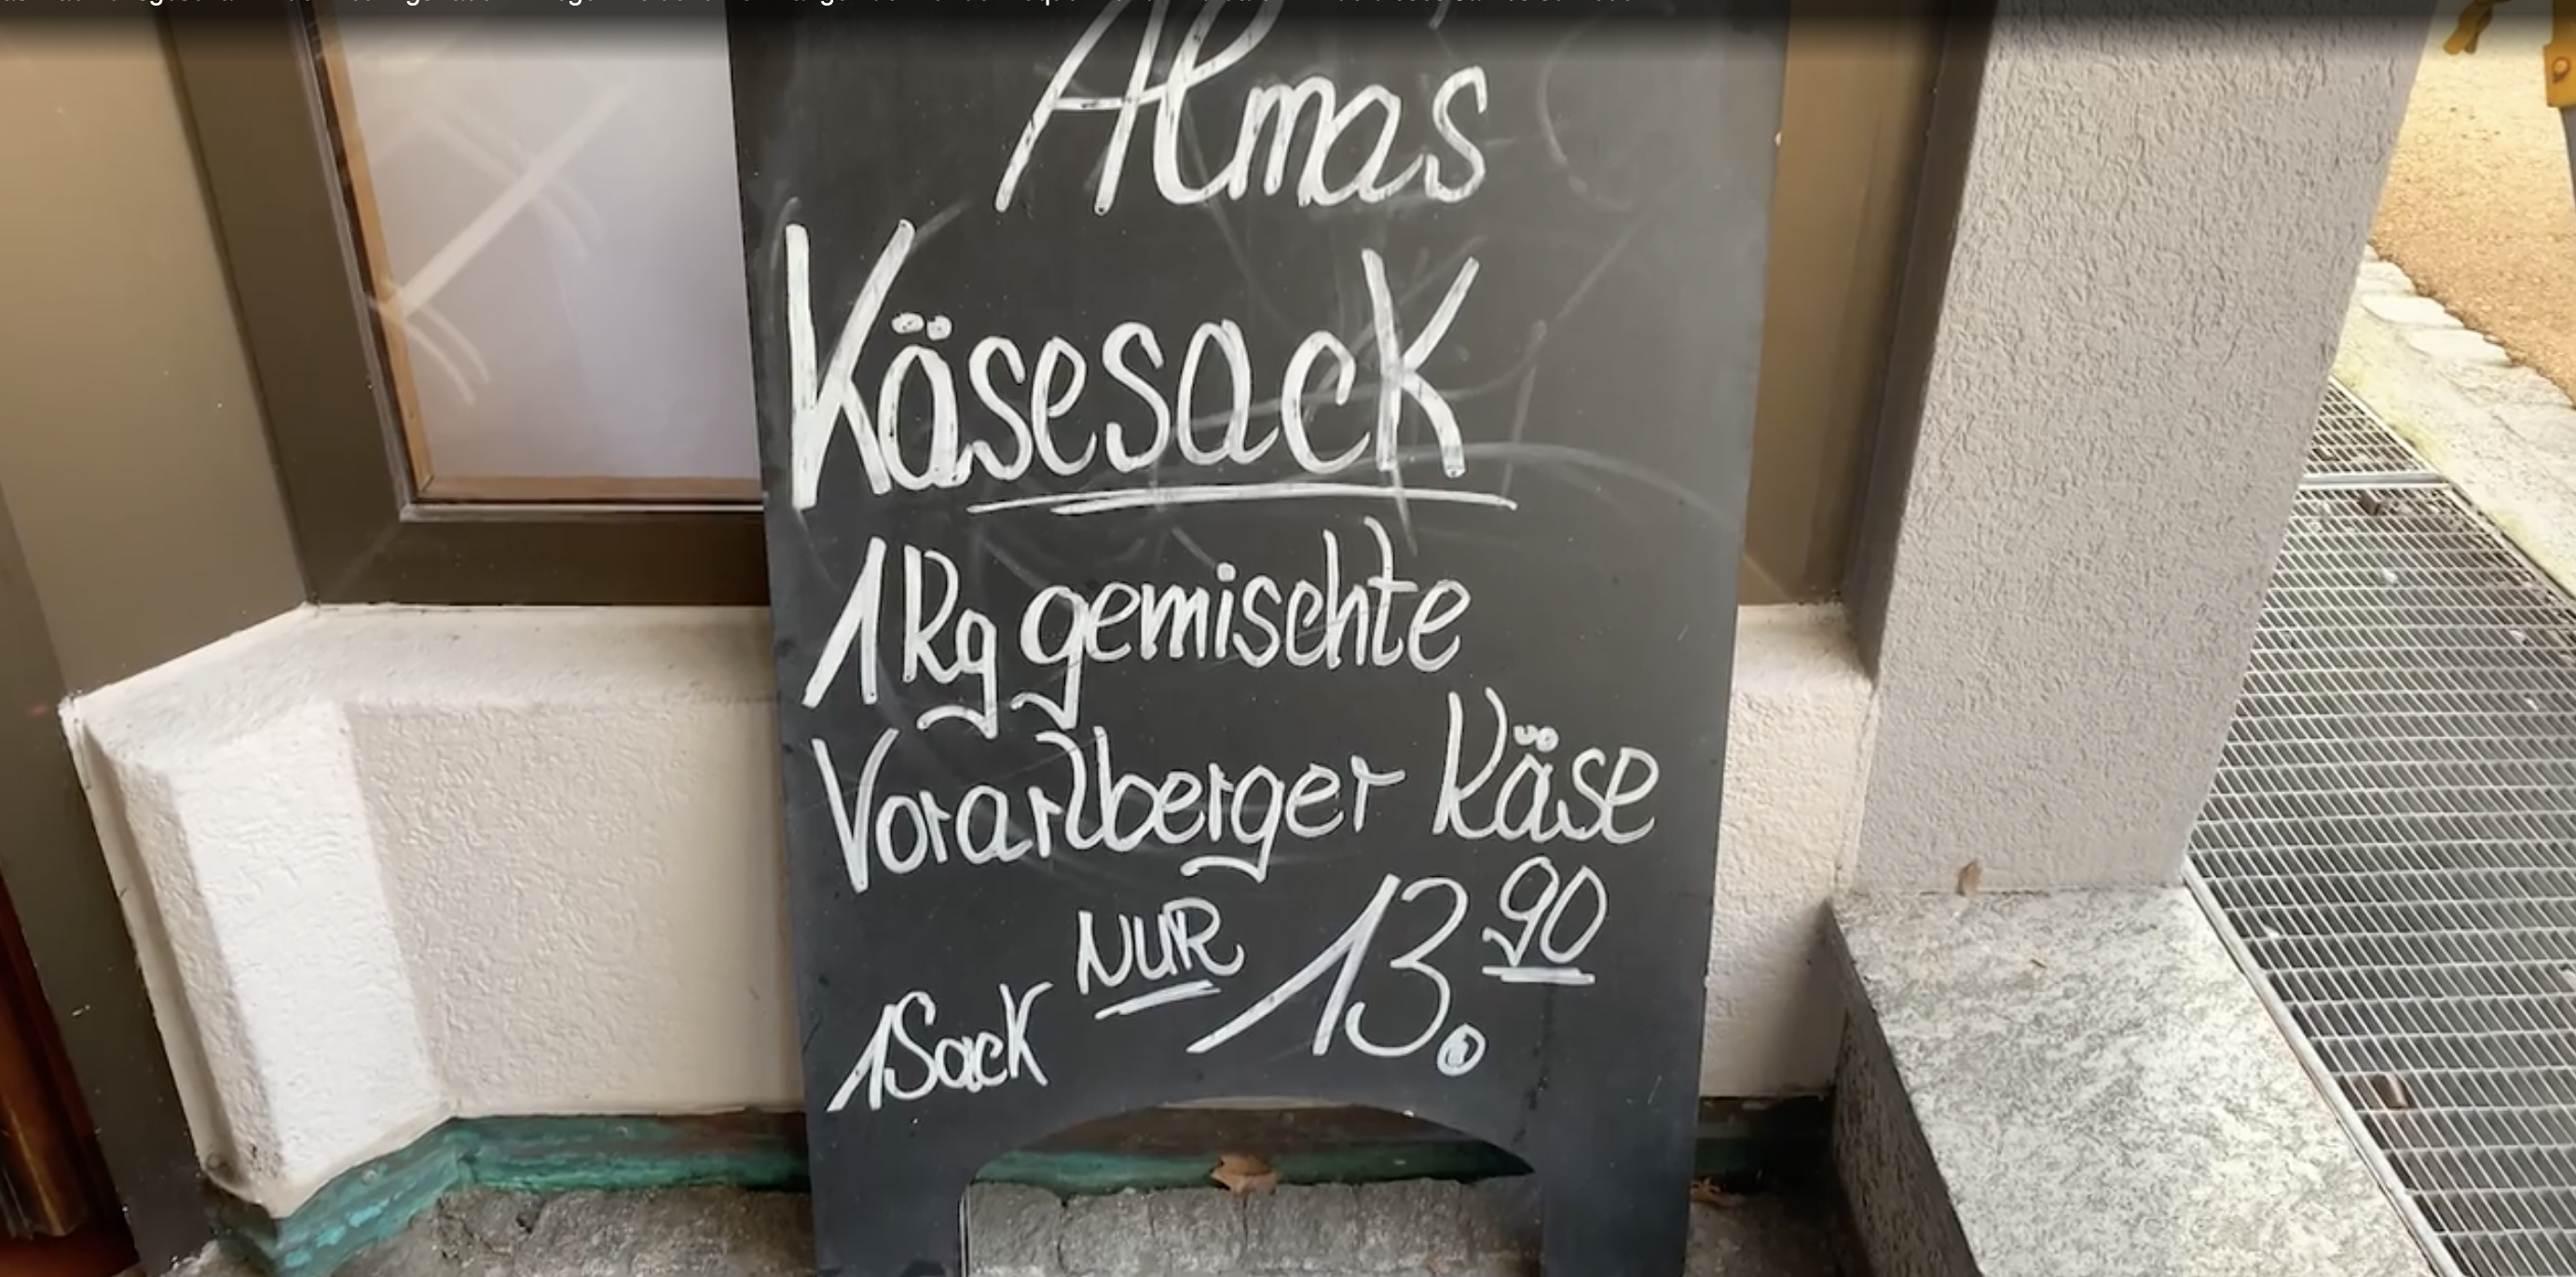 Almas
Käsesack
1Kg gemischte
Vorarlberger Käse
1Sack NUR 13.90